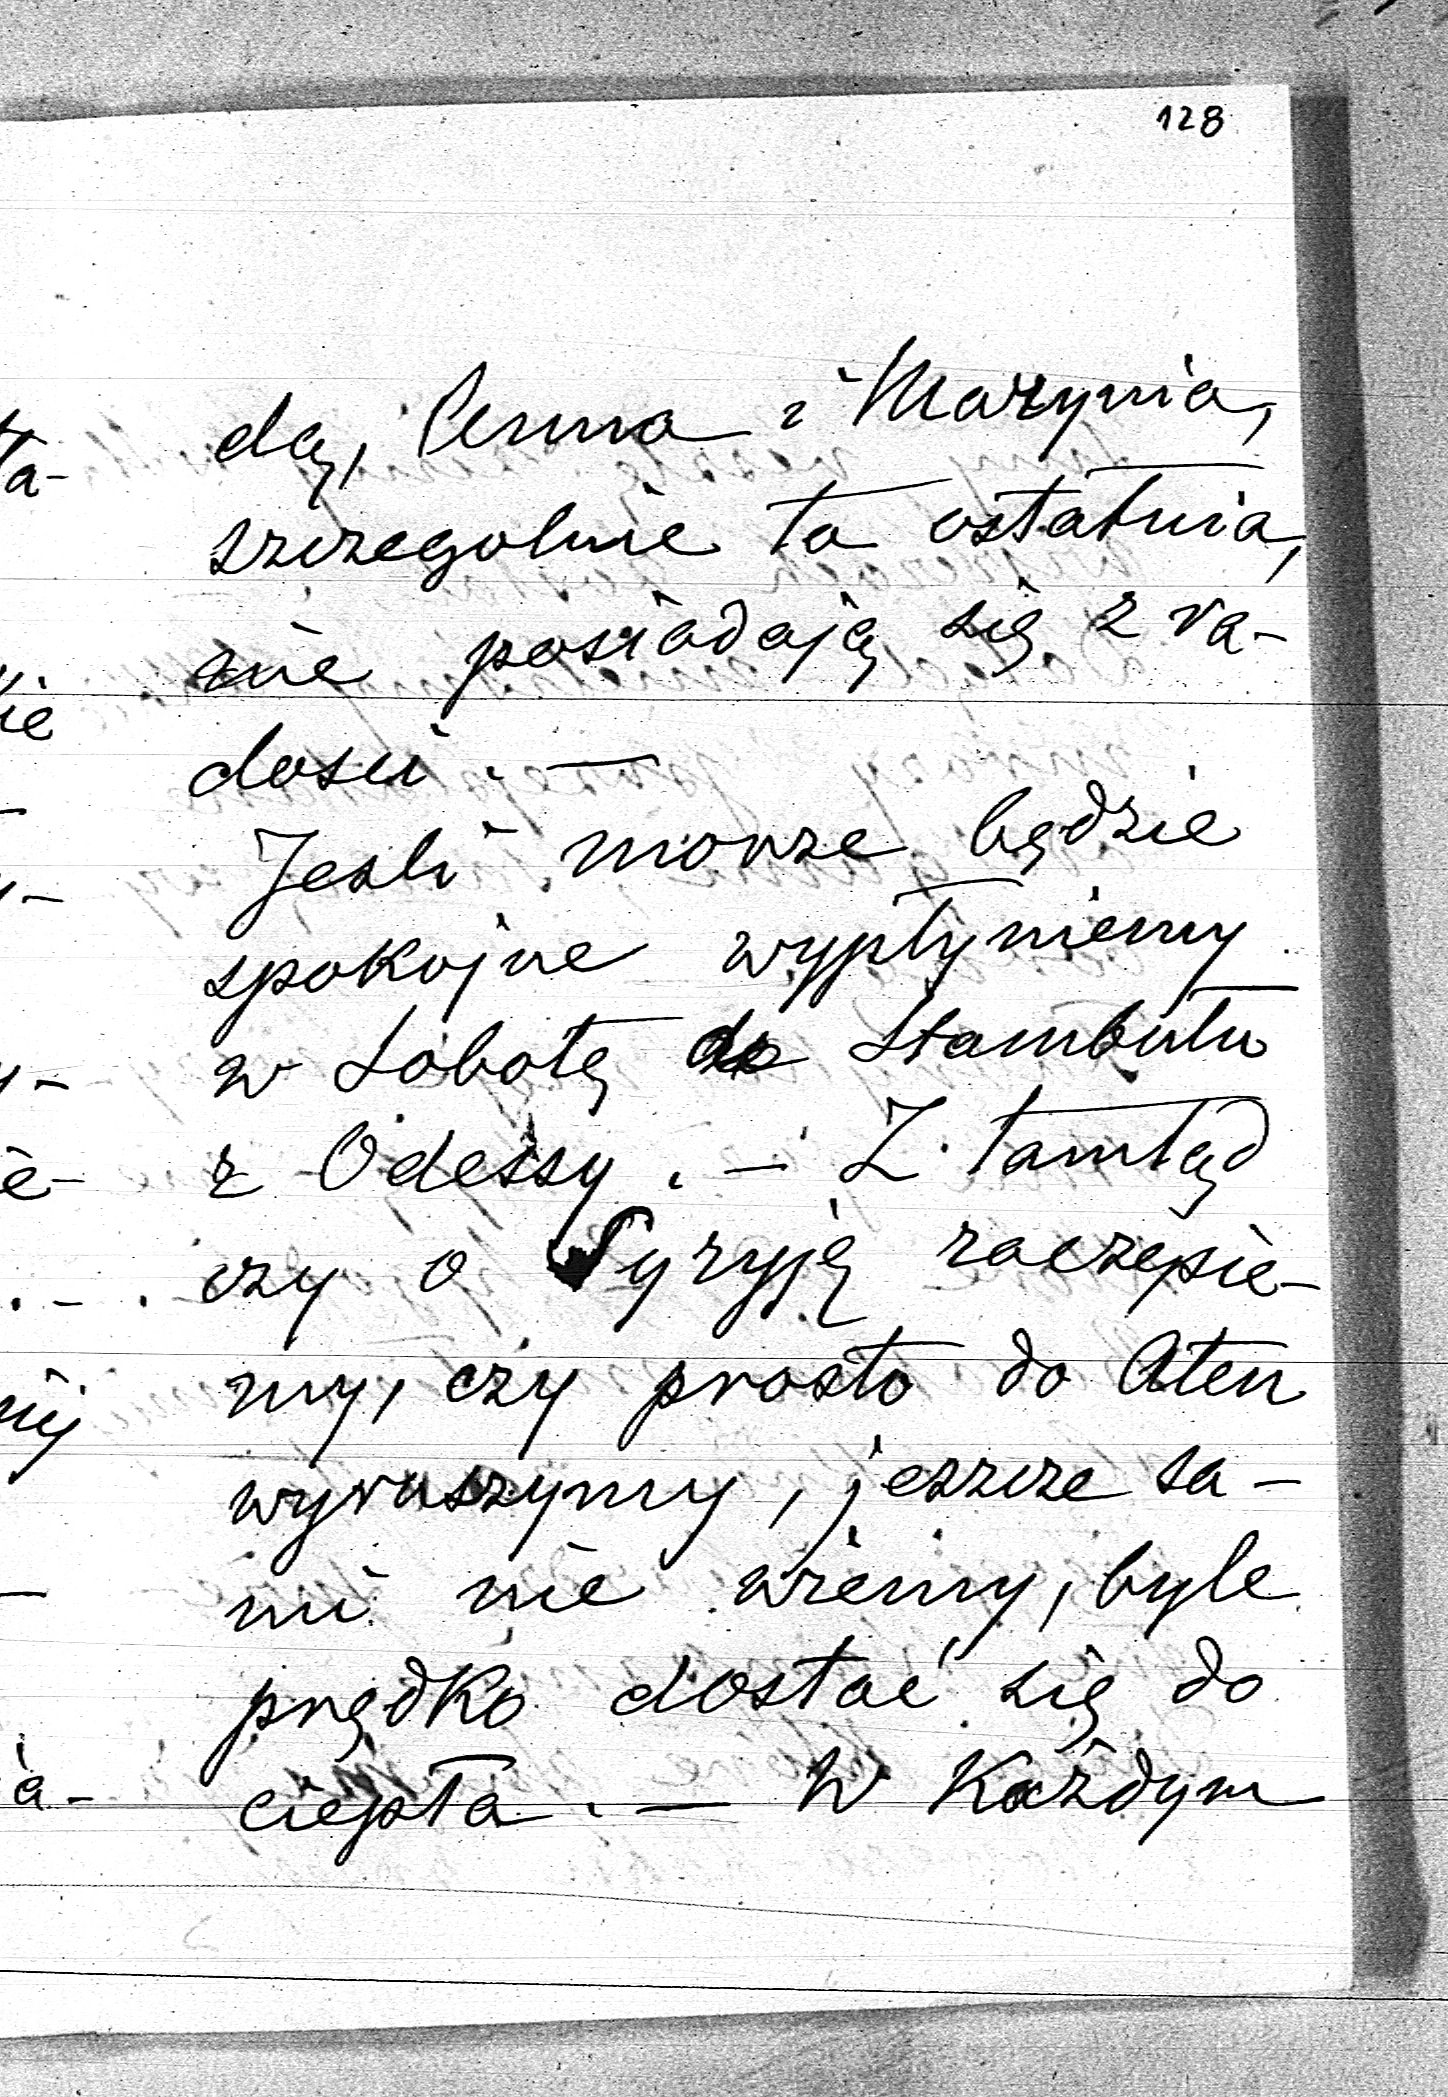 128
dą, Anna i Marynia,
szczegolnie ta ostatnia,
nie posiadają się z ra-
dosci. —
Jesli morze będzie
spokojne wypłyniemy
w Sobotę do Stambułu
z Odessy. — Z tamtąd
czy o Syryję zaczepie-
my, czy prosto do Aten
wyruszymy, jeszcze sa-
mi nie wiemy, byle
prędko dostać się do
ciepła. — W każdym